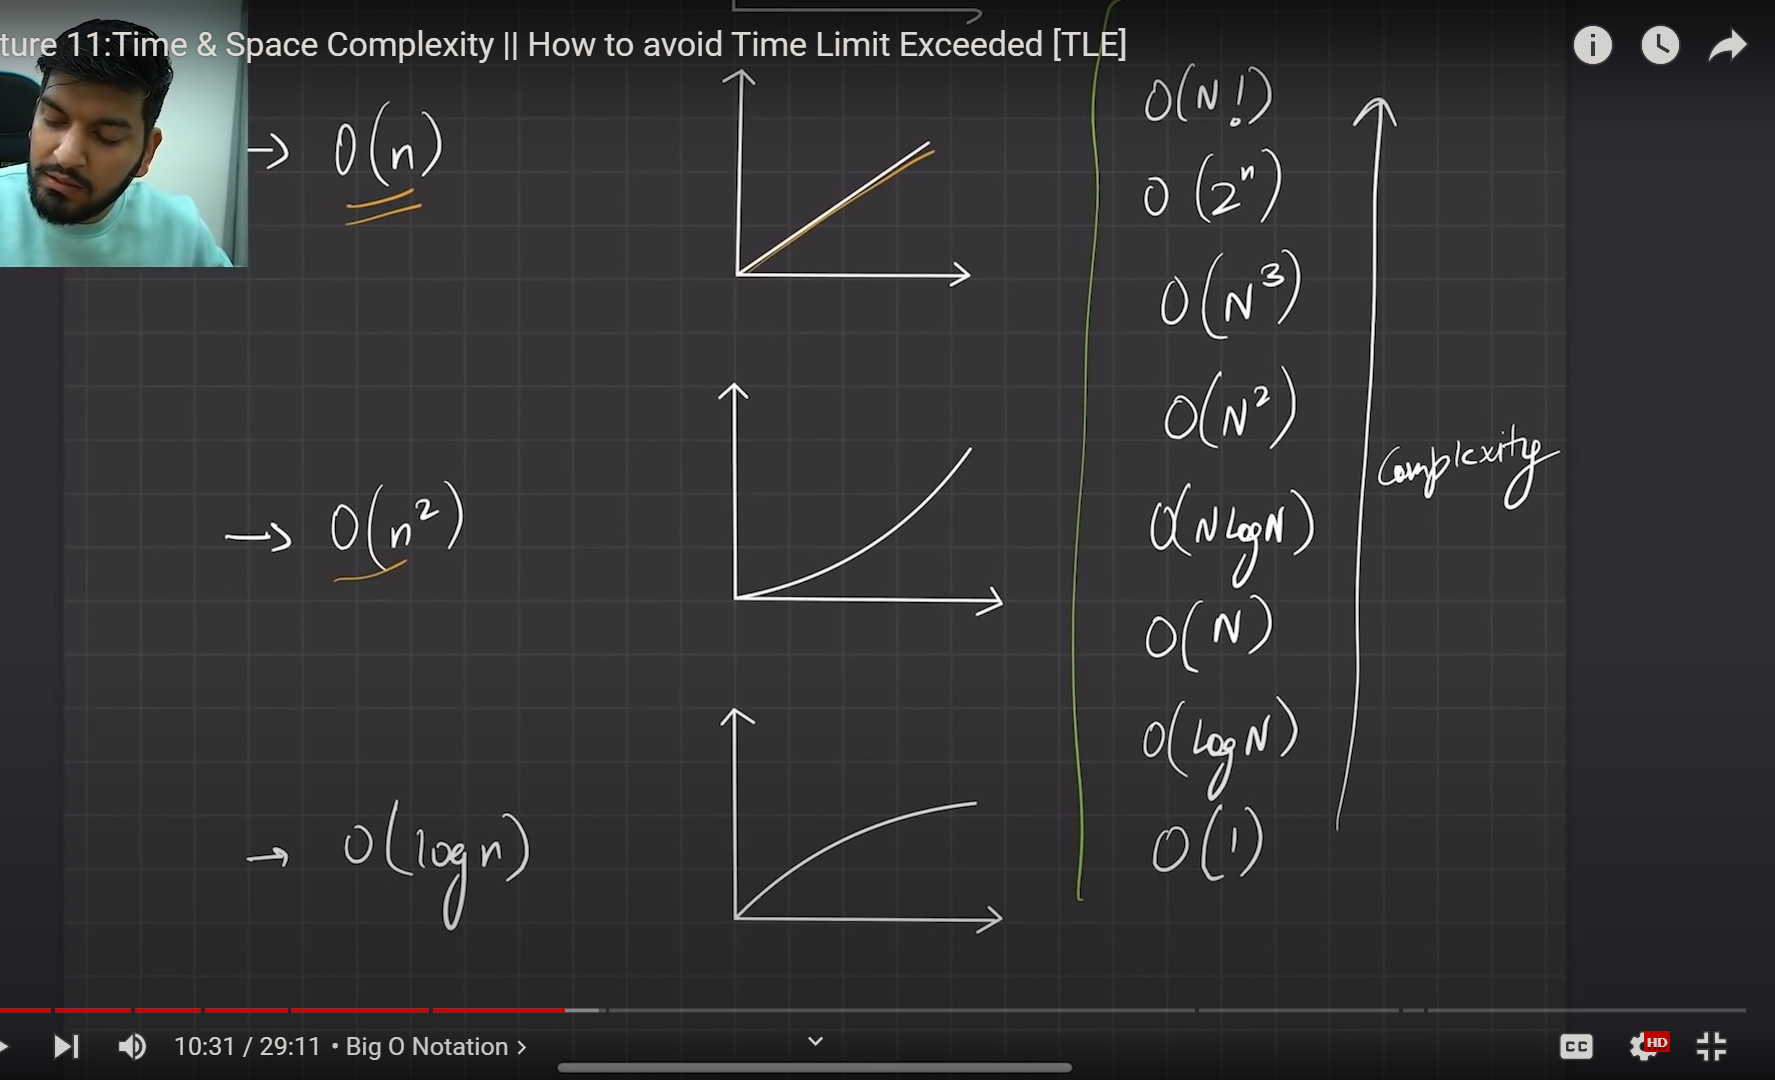 ture 11:Time & Space Complexity || How to avoid Time Limit Exceeded [TLE]
→ O(n)
→ O(n²)
→ O(log n)
O(N!)
O(2ⁿ)
O(N³)
O(N²)
O(N log N)
O(N)
O(log N)
O(1)
Complexity
10:31 / 29:11 • Big O Notation >
CC
HD